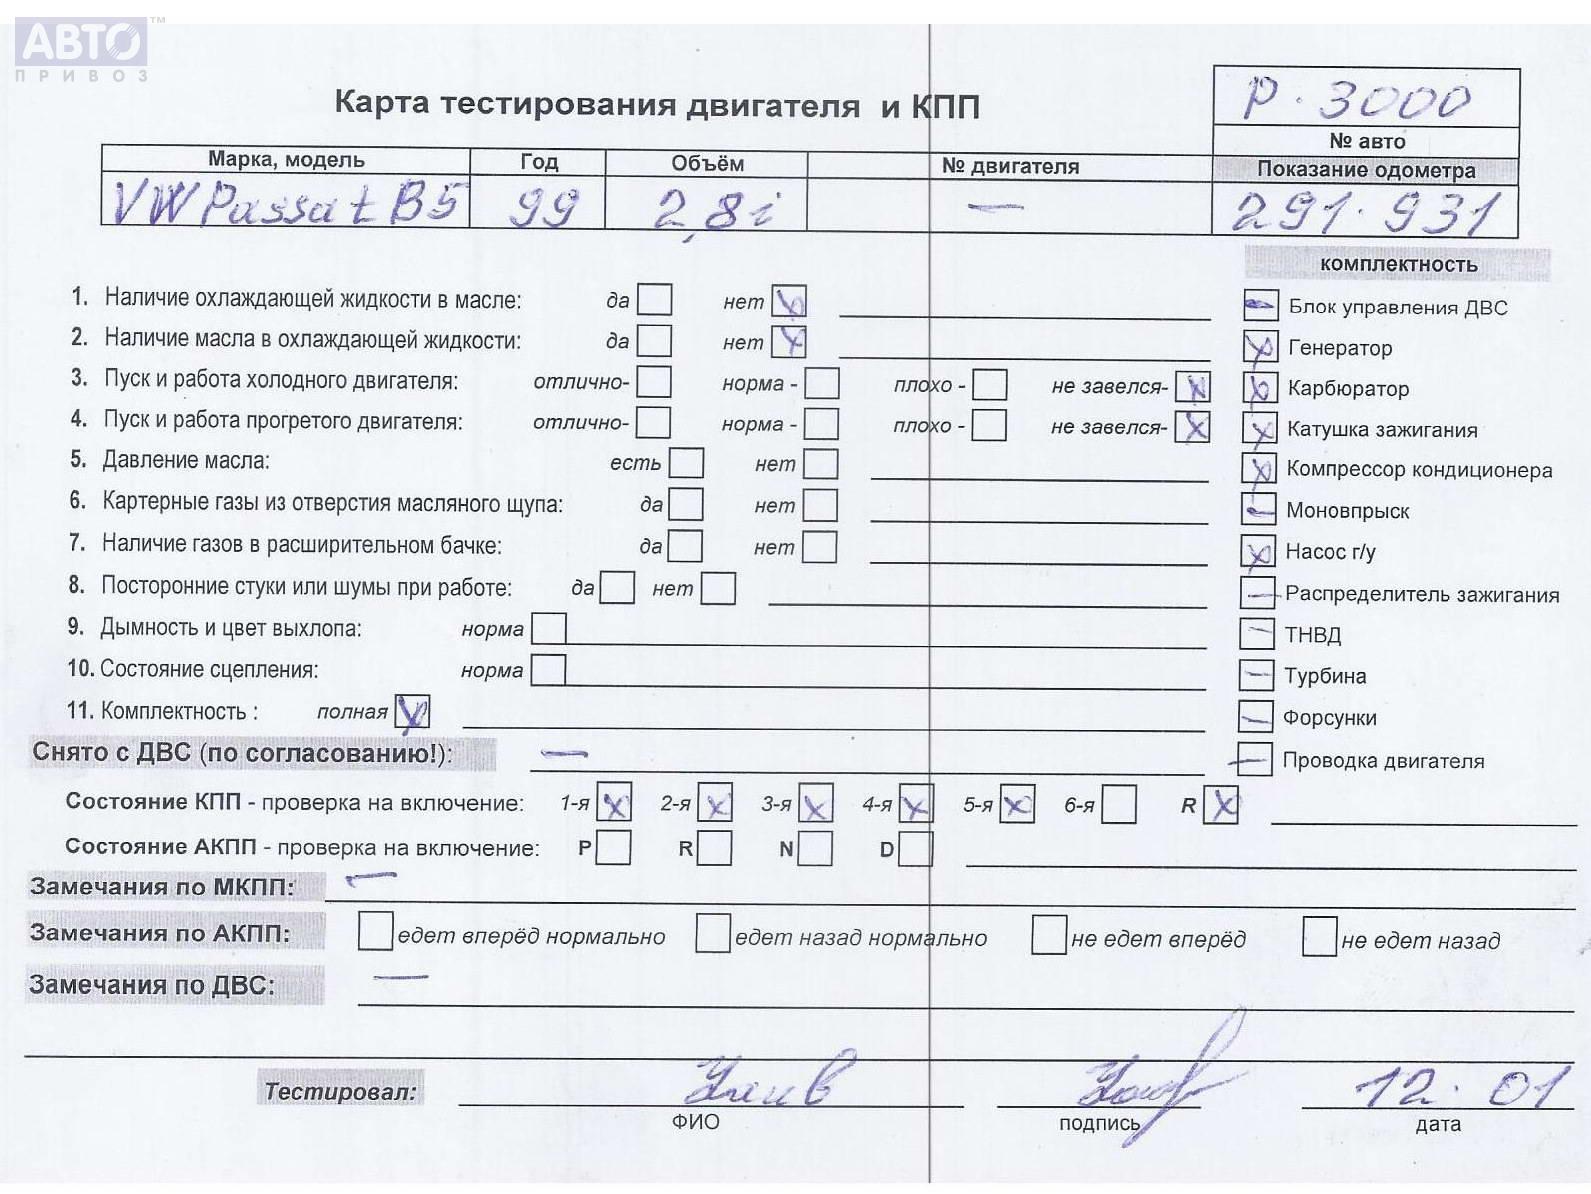 АВТО™
ПРИВОЗ
Карта тестирования двигателя и КПП
Р. 3000
№ авто
Марка, модель Год Объём № двигателя Показание одометра
VW Passat B5 99 2,8i — 291.931
комплектность
1. Наличие охлаждающей жидкости в масле: да нет x
2. Наличие масла в охлаждающей жидкости: да нет x
3. Пуск и работа холодного двигателя: отлично- норма - плохо - не завелся- x
4. Пуск и работа прогретого двигателя: отлично- норма - плохо - не завелся- x
5. Давление масла: есть нет
6. Картерные газы из отверстия масляного щупа: да нет
7. Наличие газов в расширительном бачке: да нет
8. Посторонние стуки или шумы при работе: да нет
9. Дымность и цвет выхлопа: норма
10. Состояние сцепления: норма
11. Комплектность : полная x
— Блок управления ДВС
x Генератор
x Карбюратор
x Катушка зажигания
x Компрессор кондиционера
— Моновпрыск
x Насос г/у
— Распределитель зажигания
— ТНВД
— Турбина
— Форсунки
— Проводка двигателя
Снято с ДВС (по согласованию!): —
Состояние КПП - проверка на включение: 1-я x 2-я x 3-я x 4-я x 5-я x 6-я R x
Состояние АКПП - проверка на включение: P R N D
Замечания по МКПП: —
Замечания по АКПП: едет вперёд нормально едет назад нормально не едет вперёд не едет назад
Замечания по ДВС: —
Тестировал: 12.01
ФИО подпись дата